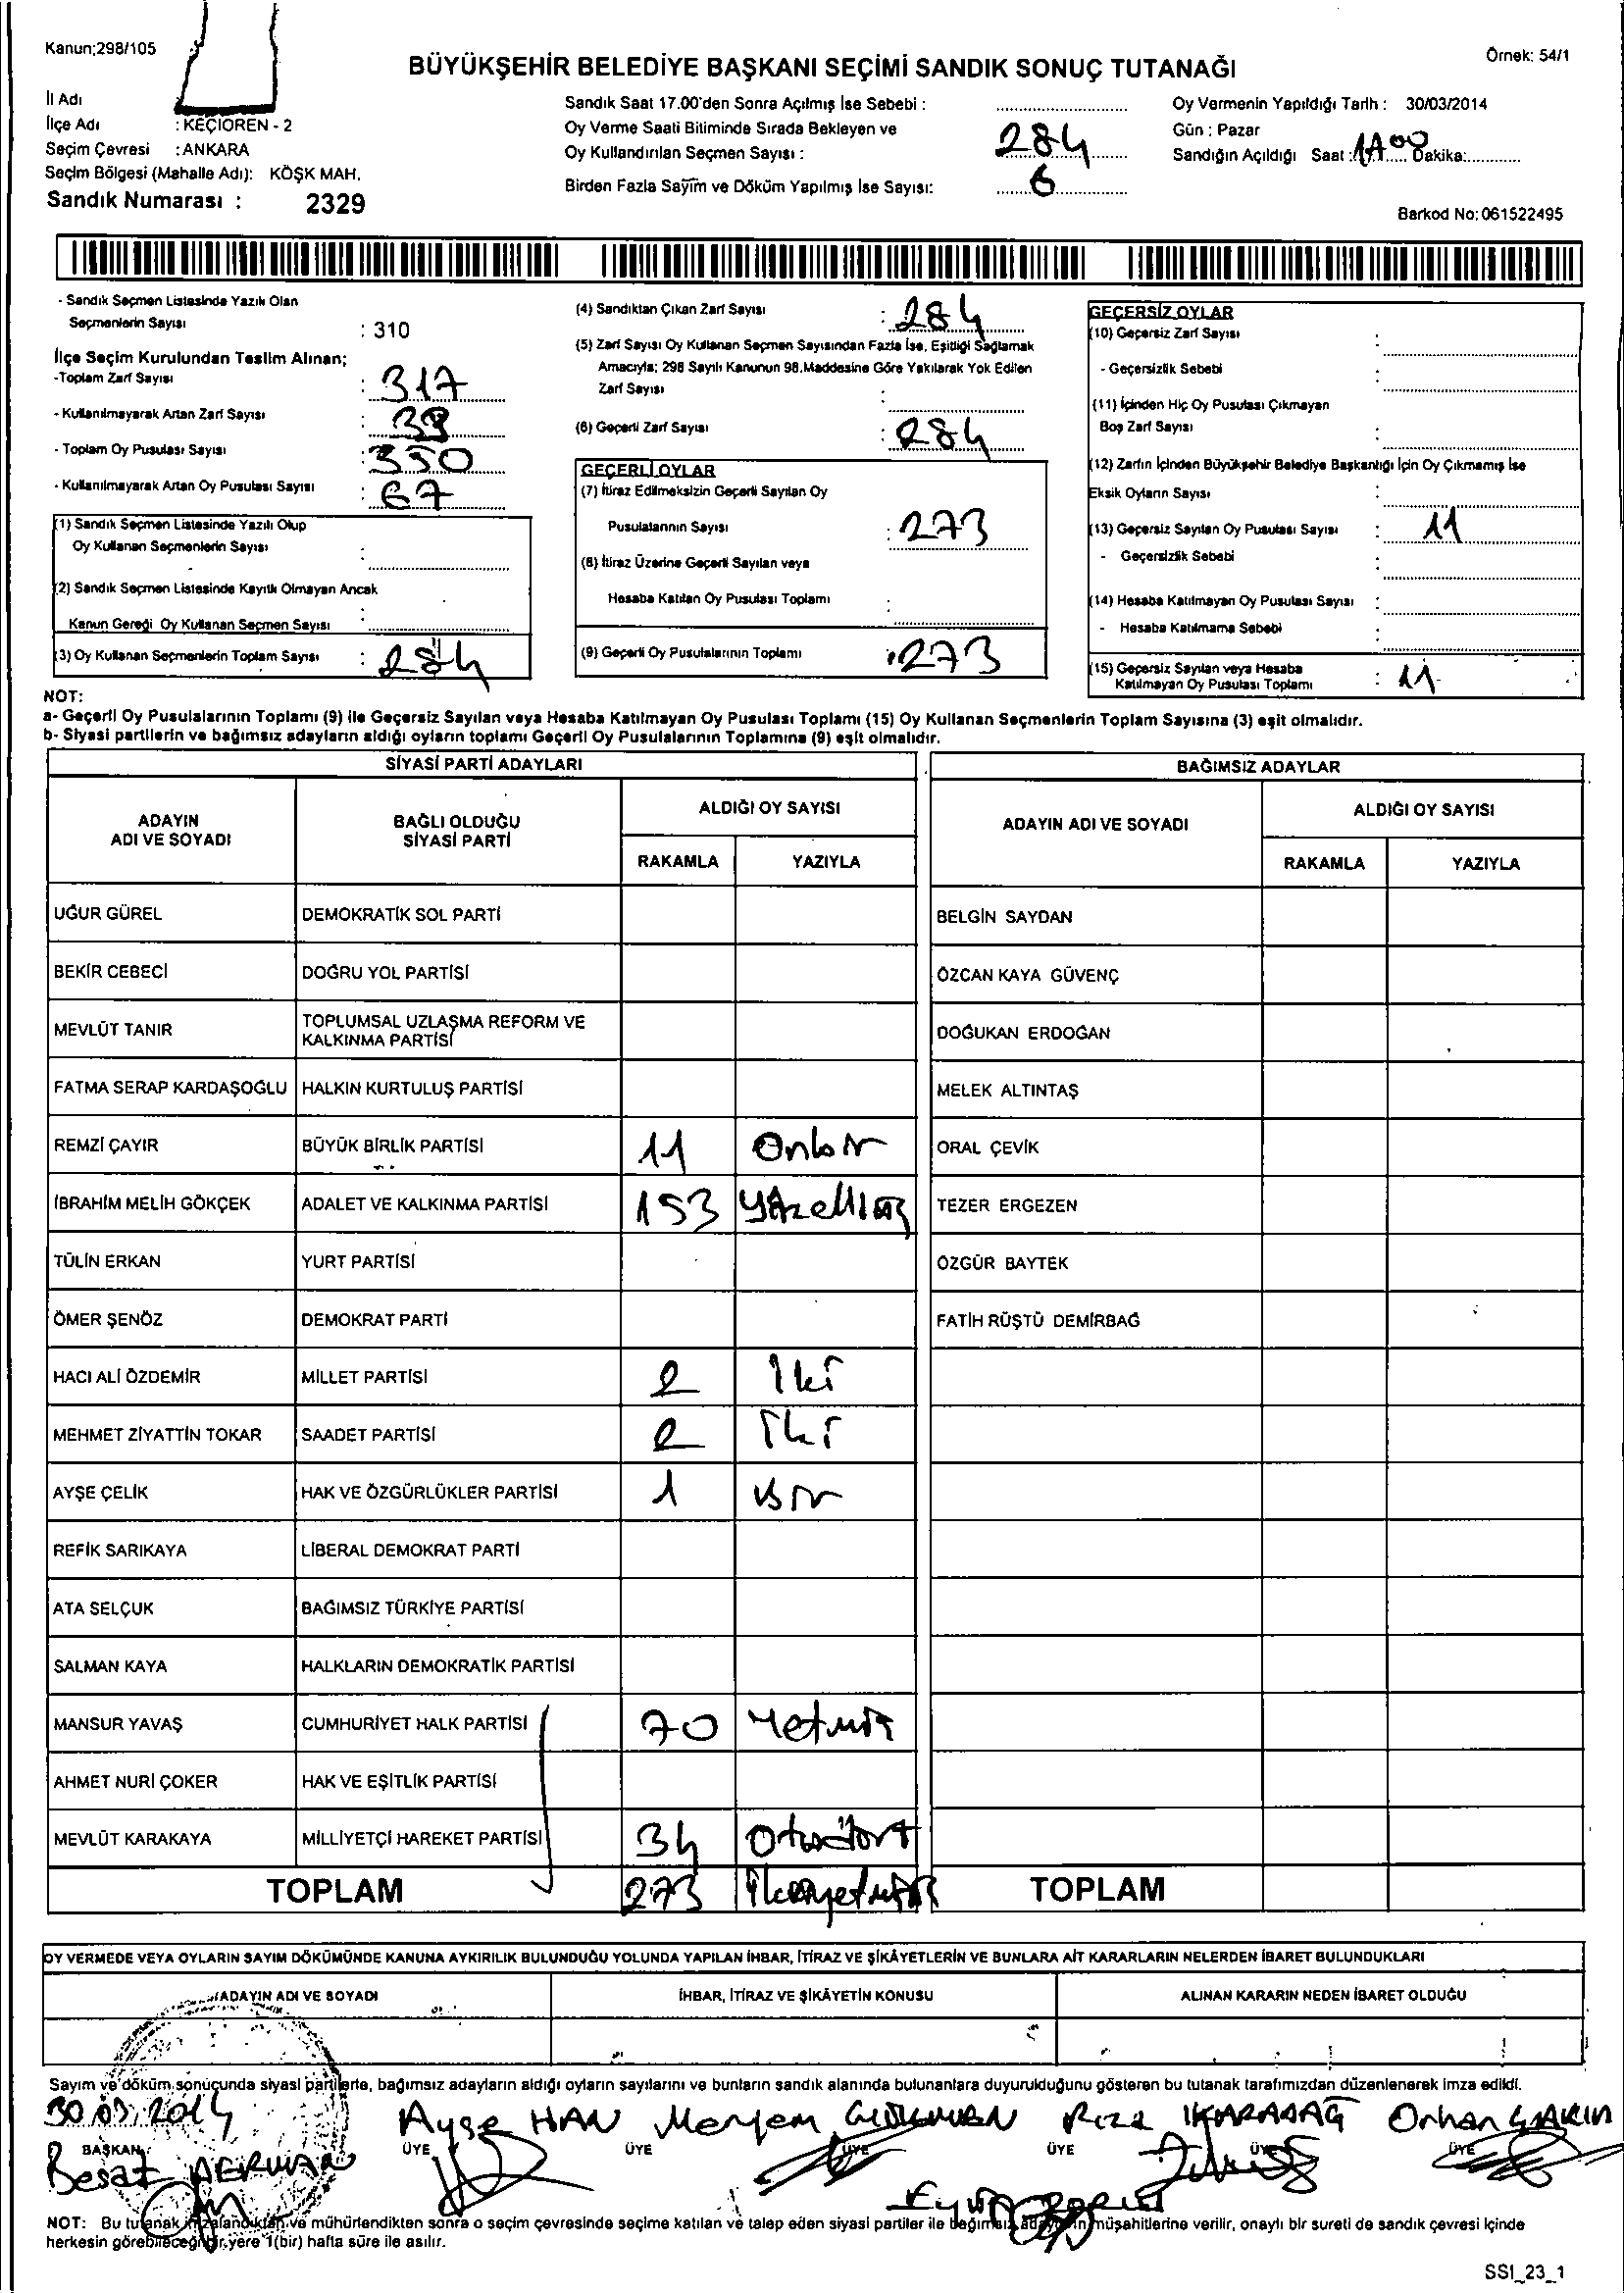 Kanun;298/105
Örnek: 54/1
BÜYÜKŞEHİR BELEDİYE BAŞKANI SEÇİMİ SANDIK SONUÇ TUTANAĞI
İl Adı
İlçe Adı : KEÇİOREN - 2
Seçim Çevresi : ANKARA
Seçim Bölgesi (Mahalle Adı): KÖŞK MAH.
Sandık Numarası : 2329
Sandık Saat 17.00'den Sonra Açılmış İse Sebebi :
Oy Verme Saati Bitiminde Sırada Bekleyen ve
Oy Kullandırılan Seçmen Sayısı : 284
Birden Fazla Sayım ve Döküm Yapılmış İse Sayısı: 6
Oy Vermenin Yapıldığı Tarih : 30/03/2014
Gün : Pazar
Sandığın Açıldığı Saat : Dakika:
Barkod No: 061522495
- Sandık Seçmen Listesinde Yazılı Olan
Seçmenlerin Sayısı : 310
İlçe Seçim Kurulundan Teslim Alınan;
-Toplam Zarf Sayısı : 317
- Kullanılmayarak Artan Zarf Sayısı : 33
- Toplam Oy Pusulası Sayısı : 350
- Kullanılmayarak Artan Oy Pusulası Sayısı : 67
(1) Sandık Seçmen Listesinde Yazılı Olup
Oy Kullanan Seçmenlerin Sayısı :
(2) Sandık Seçmen Listesinde Kayıtlı Olmayan Ancak
Kanun Gereği Oy Kullanan Seçmen Sayısı :
(3) Oy Kullanan Seçmenlerin Toplam Sayısı : 284
(4) Sandıktan Çıkan Zarf Sayısı : 284
(5) Zarf Sayısı Oy Kullanan Seçmen Sayısından Fazla İse, Eşitliği Sağlamak
Amacıyla; 298 Sayılı Kanunun 98.Maddesine Göre Yakılarak Yok Edilen
Zarf Sayısı :
(6) Geçerli Zarf Sayısı : 284
GEÇERLİ OYLAR
(7) İtiraz Edilmeksizin Geçerli Sayılan Oy
Pusulalarının Sayısı : 273
(8) İtiraz Üzerine Geçerli Sayılan veya
Hesaba Katılan Oy Pusulası Toplamı :
(9) Geçerli Oy Pusulalarının Toplamı : 273
GEÇERSİZ OYLAR
(10) Geçersiz Zarf Sayısı :
- Geçersizlik Sebebi :
(11) İçinden Hiç Oy Pusulası Çıkmayan
Boş Zarf Sayısı :
(12) Zarfın İçinden Büyükşehir Belediye Başkanlığı İçin Oy Çıkmamış İse
Eksik Oyların Sayısı :
(13) Geçersiz Sayılan Oy Pusulası Sayısı : 11
- Geçersizlik Sebebi :
(14) Hesaba Katılmayan Oy Pusulası Sayısı :
- Hesaba Katılmama Sebebi :
(15) Geçersiz Sayılan veya Hesaba
Katılmayan Oy Pusulası Toplamı : 11
NOT:
a- Geçerli Oy Pusulalarının Toplamı (9) ile Geçersiz Sayılan veya Hesaba Katılmayan Oy Pusulası Toplamı (15) Oy Kullanan Seçmenlerin Toplam Sayısına (3) eşit olmalıdır.
b- Siyasi partilerin ve bağımsız adayların aldığı oyların toplamı Geçerli Oy Pusulalarının Toplamına (9) eşit olmalıdır.
SİYASİ PARTİ ADAYLARI
ADAYIN ADI VE SOYADI
BAĞLI OLDUĞU SİYASİ PARTİ
ALDIĞI OY SAYISI
RAKAMLA YAZIYLA
UĞUR GÜREL DEMOKRATİK SOL PARTİ
BEKİR CEBECİ DOĞRU YOL PARTİSİ
MEVLÜT TANIR TOPLUMSAL UZLAŞMA REFORM VE
KALKINMA PARTİSİ
FATMA SERAP KARDAŞOĞLU HALKIN KURTULUŞ PARTİSİ
REMZİ ÇAYIR BÜYÜK BİRLİK PARTİSİ 11 Onbir
İBRAHİM MELİH GÖKÇEK ADALET VE KALKINMA PARTİSİ 153
TÜLİN ERKAN YURT PARTİSİ
ÖMER ŞENÖZ DEMOKRAT PARTİ
HACI ALİ ÖZDEMİR MİLLET PARTİSİ 2 İki
MEHMET ZİYATTİN TOKAR SAADET PARTİSİ 2 İki
AYŞE ÇELİK HAK VE ÖZGÜRLÜKLER PARTİSİ 1 Bir
REFİK SARIKAYA LİBERAL DEMOKRAT PARTİ
ATA SELÇUK BAĞIMSIZ TÜRKİYE PARTİSİ
SALMAN KAYA HALKLARIN DEMOKRATİK PARTİSİ
MANSUR YAVAŞ CUMHURİYET HALK PARTİSİ 70 Yetmiş
AHMET NURİ ÇOKER HAK VE EŞİTLİK PARTİSİ
MEVLÜT KARAKAYA MİLLİYETÇİ HAREKET PARTİSİ 34 Otuzdört
TOPLAM 273
BAĞIMSIZ ADAYLAR
ADAYIN ADI VE SOYADI
ALDIĞI OY SAYISI
RAKAMLA YAZIYLA
BELGİN SAYDAN
ÖZCAN KAYA GÜVENÇ
DOĞUKAN ERDOĞAN
MELEK ALTINTAŞ
ORAL ÇEVİK
TEZER ERGEZEN
ÖZGÜR BAYTEK
FATİH RÜŞTÜ DEMİRBAĞ
TOPLAM
OY VERMEDE VEYA OYLARIN SAYIM DÖKÜMÜNDE KANUNA AYKIRILIK BULUNDUĞU YOLUNDA YAPILAN İHBAR, İTİRAZ VE ŞİKÂYETLERİN VE BUNLARA AİT KARARLARIN NELERDEN İBARET BULUNDUKLARI
ADAYIN ADI VE SOYADI
İHBAR, İTİRAZ VE ŞİKÂYETİN KONUSU
ALINAN KARARIN NEDEN İBARET OLDUĞU
Sayım ve döküm sonucunda siyasi partilerle, bağımsız adayların aldığı oyların sayılarını ve bunların sandık alanında bulunanlara duyurulduğunu gösteren bu tutanak tarafımızdan düzenlenerek imza edildi.
30.03.2014 Ayşe HAN Meryem Rıza KARADAĞ Orhan
BAŞKAN ÜYE ÜYE ÜYE ÜYE ÜYE ÜYE
NOT: Bu tutanak imzalandıktan ve mühürlendikten sonra o seçim çevresinde seçime katılan ve talep eden siyasi partiler ile bağımsız adayların müşahitlerine verilir, onaylı bir sureti de sandık çevresi içinde
herkesin görebileceği bir yere 1(bir) hafta süre ile asılır.
SSI_23_1